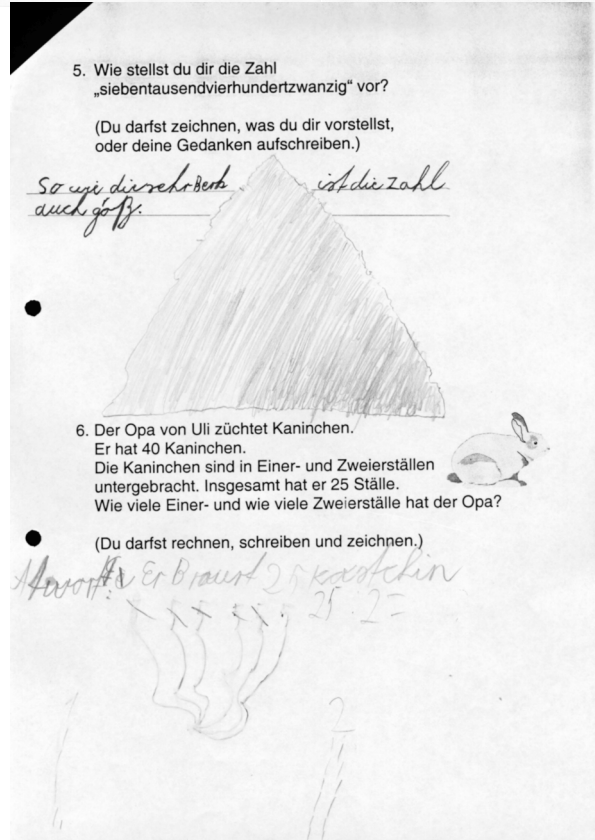 5. Wie stellst du dir die Zahl
„siebentausendvierhundertzwanzig“ vor?
(Du darfst zeichnen, was du dir vorstellst,
oder deine Gedanken aufschreiben.)
So wie ist die Zahl
auch göß.
6. Der Opa von Uli züchtet Kaninchen.
Er hat 40 Kaninchen.
Die Kaninchen sind in Einer- und Zweierställen
untergebracht. Insgesamt hat er 25 Ställe.
Wie viele Einer- und wie viele Zweierställe hat der Opa?
(Du darfst rechnen, schreiben und zeichnen.)
Er Braust 25
25 · 2 =
1 2